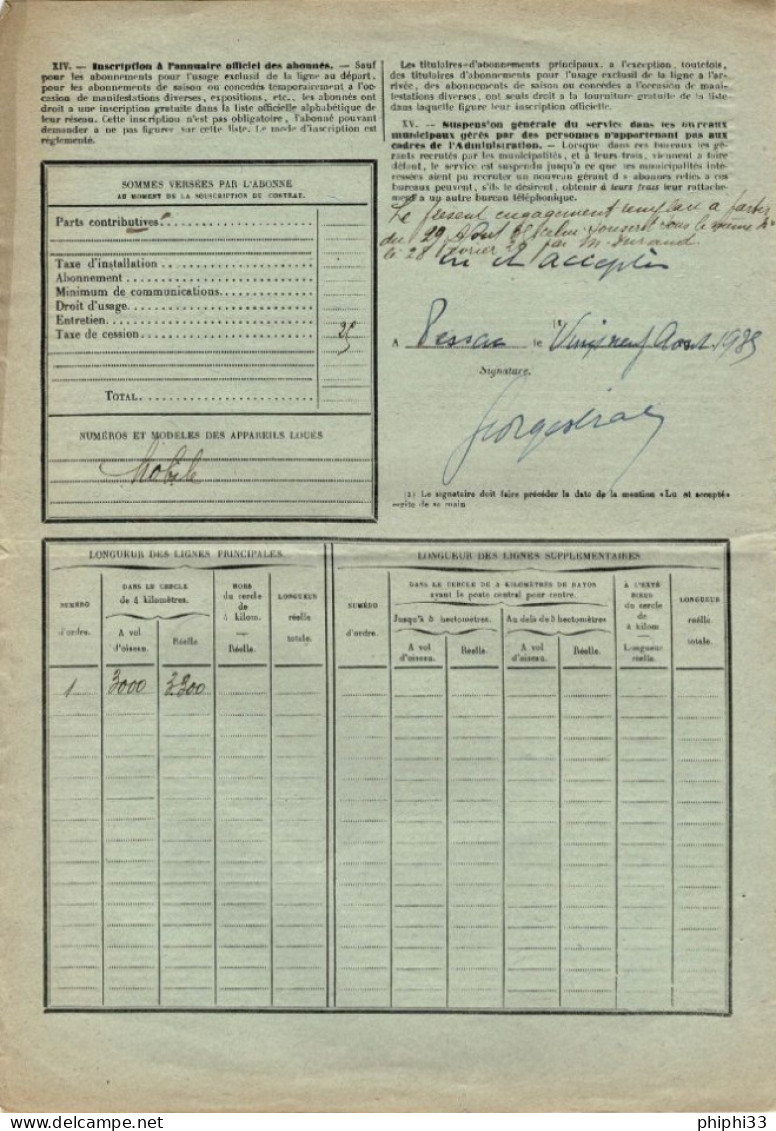 XIV. — Inscription à l'annuaire officiel des abonnés. — Sauf
pour les abonnements pour l'usage exclusif de la ligne au départ,
pour les abonnements de saison ou concédés temporairement à l'oc-
casion de manifestations diverses, expositions, etc., les abonnés ont
droit a une inscription gratuite dans la liste officielle alphabétique de
leur réseau. Cette inscription n'est pas obligatoire, l'abonné pouvant
demander a ne pas figurer sur cette liste. Le mode d'inscription est
réglementé.
SOMMES VERSÉES PAR L'ABONNÉ
AU MOMENT DE LA SOUSCRIPTION DU CONTRAT.
Parts contributives
Taxe d'installation
Abonnement
Minimum de communications
Droit d'usage
Entretien
Taxe de cession
TOTAL
NUMÉROS ET MODÈLES DES APPAREILS LOUÉS
Mobile
Les titulaires d'abonnements principaux, a l'exception, toutefois,
des titulaires d'abonnements pour l'usage exclusif de la ligne a l'ar-
rivée, des abonnements de saison ou concédés a l'occasion de mani-
festations diverses, ont seuls droit a la fourniture gratuite de la liste
dans laquelle figure leur inscription officielle.
XV. — Suspension générale du service dans les bureaux
municipaux gérés par des personnes n'appartenant pas aux
cadres de l'Administration. — Lorsque dans ces bureaux les gé-
rants recrutés par les municipalités, et à leurs frais, viennent a faire
défaut, le service est suspendu jusqu'a ce que ses municipalités inté-
ressées aient pu recruter un nouveau gérant d'» abonnés reliés a ces
bureaux peuvent, s'ils le désirent, obtenir à leurs frais leur rattache-
ment a un autre bureau téléphonique.
Le présent engagement remplace à partir
du 29 Août celui souscrit sous le même No
le 28 février 29 par M. Durand
Lu et accepté
A Pessac le Vingt neuf Aout 1935
Signature.
(1) Le signataire doit faire précéder la date de la mention «Lu et accepté»
écrite de sa main
LONGUEUR DES LIGNES PRINCIPALES.
NUMÉRO
d'ordre.
DANS LE CERCLE
de 4 kilomètres.
A vol
d'oiseau.
Réelle.
HORS
du cercle
de
4 kilom.
Réelle.
LONGUEUR
réelle
totale.
1 3000 3300
LONGUEUR DES LIGNES SUPPLÉMENTAIRES
NUMÉRO
d'ordre.
DANS LE CERCLE DE 4 KILOMÈTRES DE RAYON
ayant le poste central pour centre.
Jusqu'à 5 hectomètres.
Au delà de 5 hectomètres
A vol
d'oiseau.
Réelle.
A vol
d'oiseau.
Réelle.
A L'EXTÉ
RIEUR
du cercle
de
4 kilom
Longueur
réelle.
LONGUEUR
réelle.
totale.
phiphi33